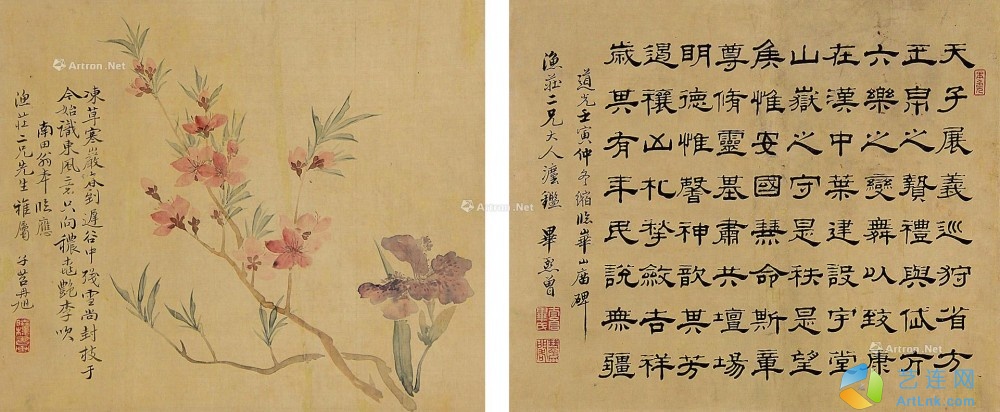 凍草寒巖春到遲谷中殘雪尚封枝于
今始識東風意只向穠桃艷李吹
南田翁本臨應
漁莊二兄先生雅屬 子苕丹旭
天子展義巡狩省方
玉帛之贄禮與岱亢
六樂之變舞以致康
在漢中葉建設宇堂
山嶽之守是秩是望
侯惟安國兼命斯章
尊脩靈基肅共壇場
明德惟馨神歆其芳
遏禳凶札揫斂吉祥
歲其有年民說無疆
道光壬寅仲冬縮臨華山廟碑
漁莊二兄大人灋鑑 畢熙曾
Artron.Net
Artron.Net
Artron.Net
Artron.Net
艺连网
ArtLink.com